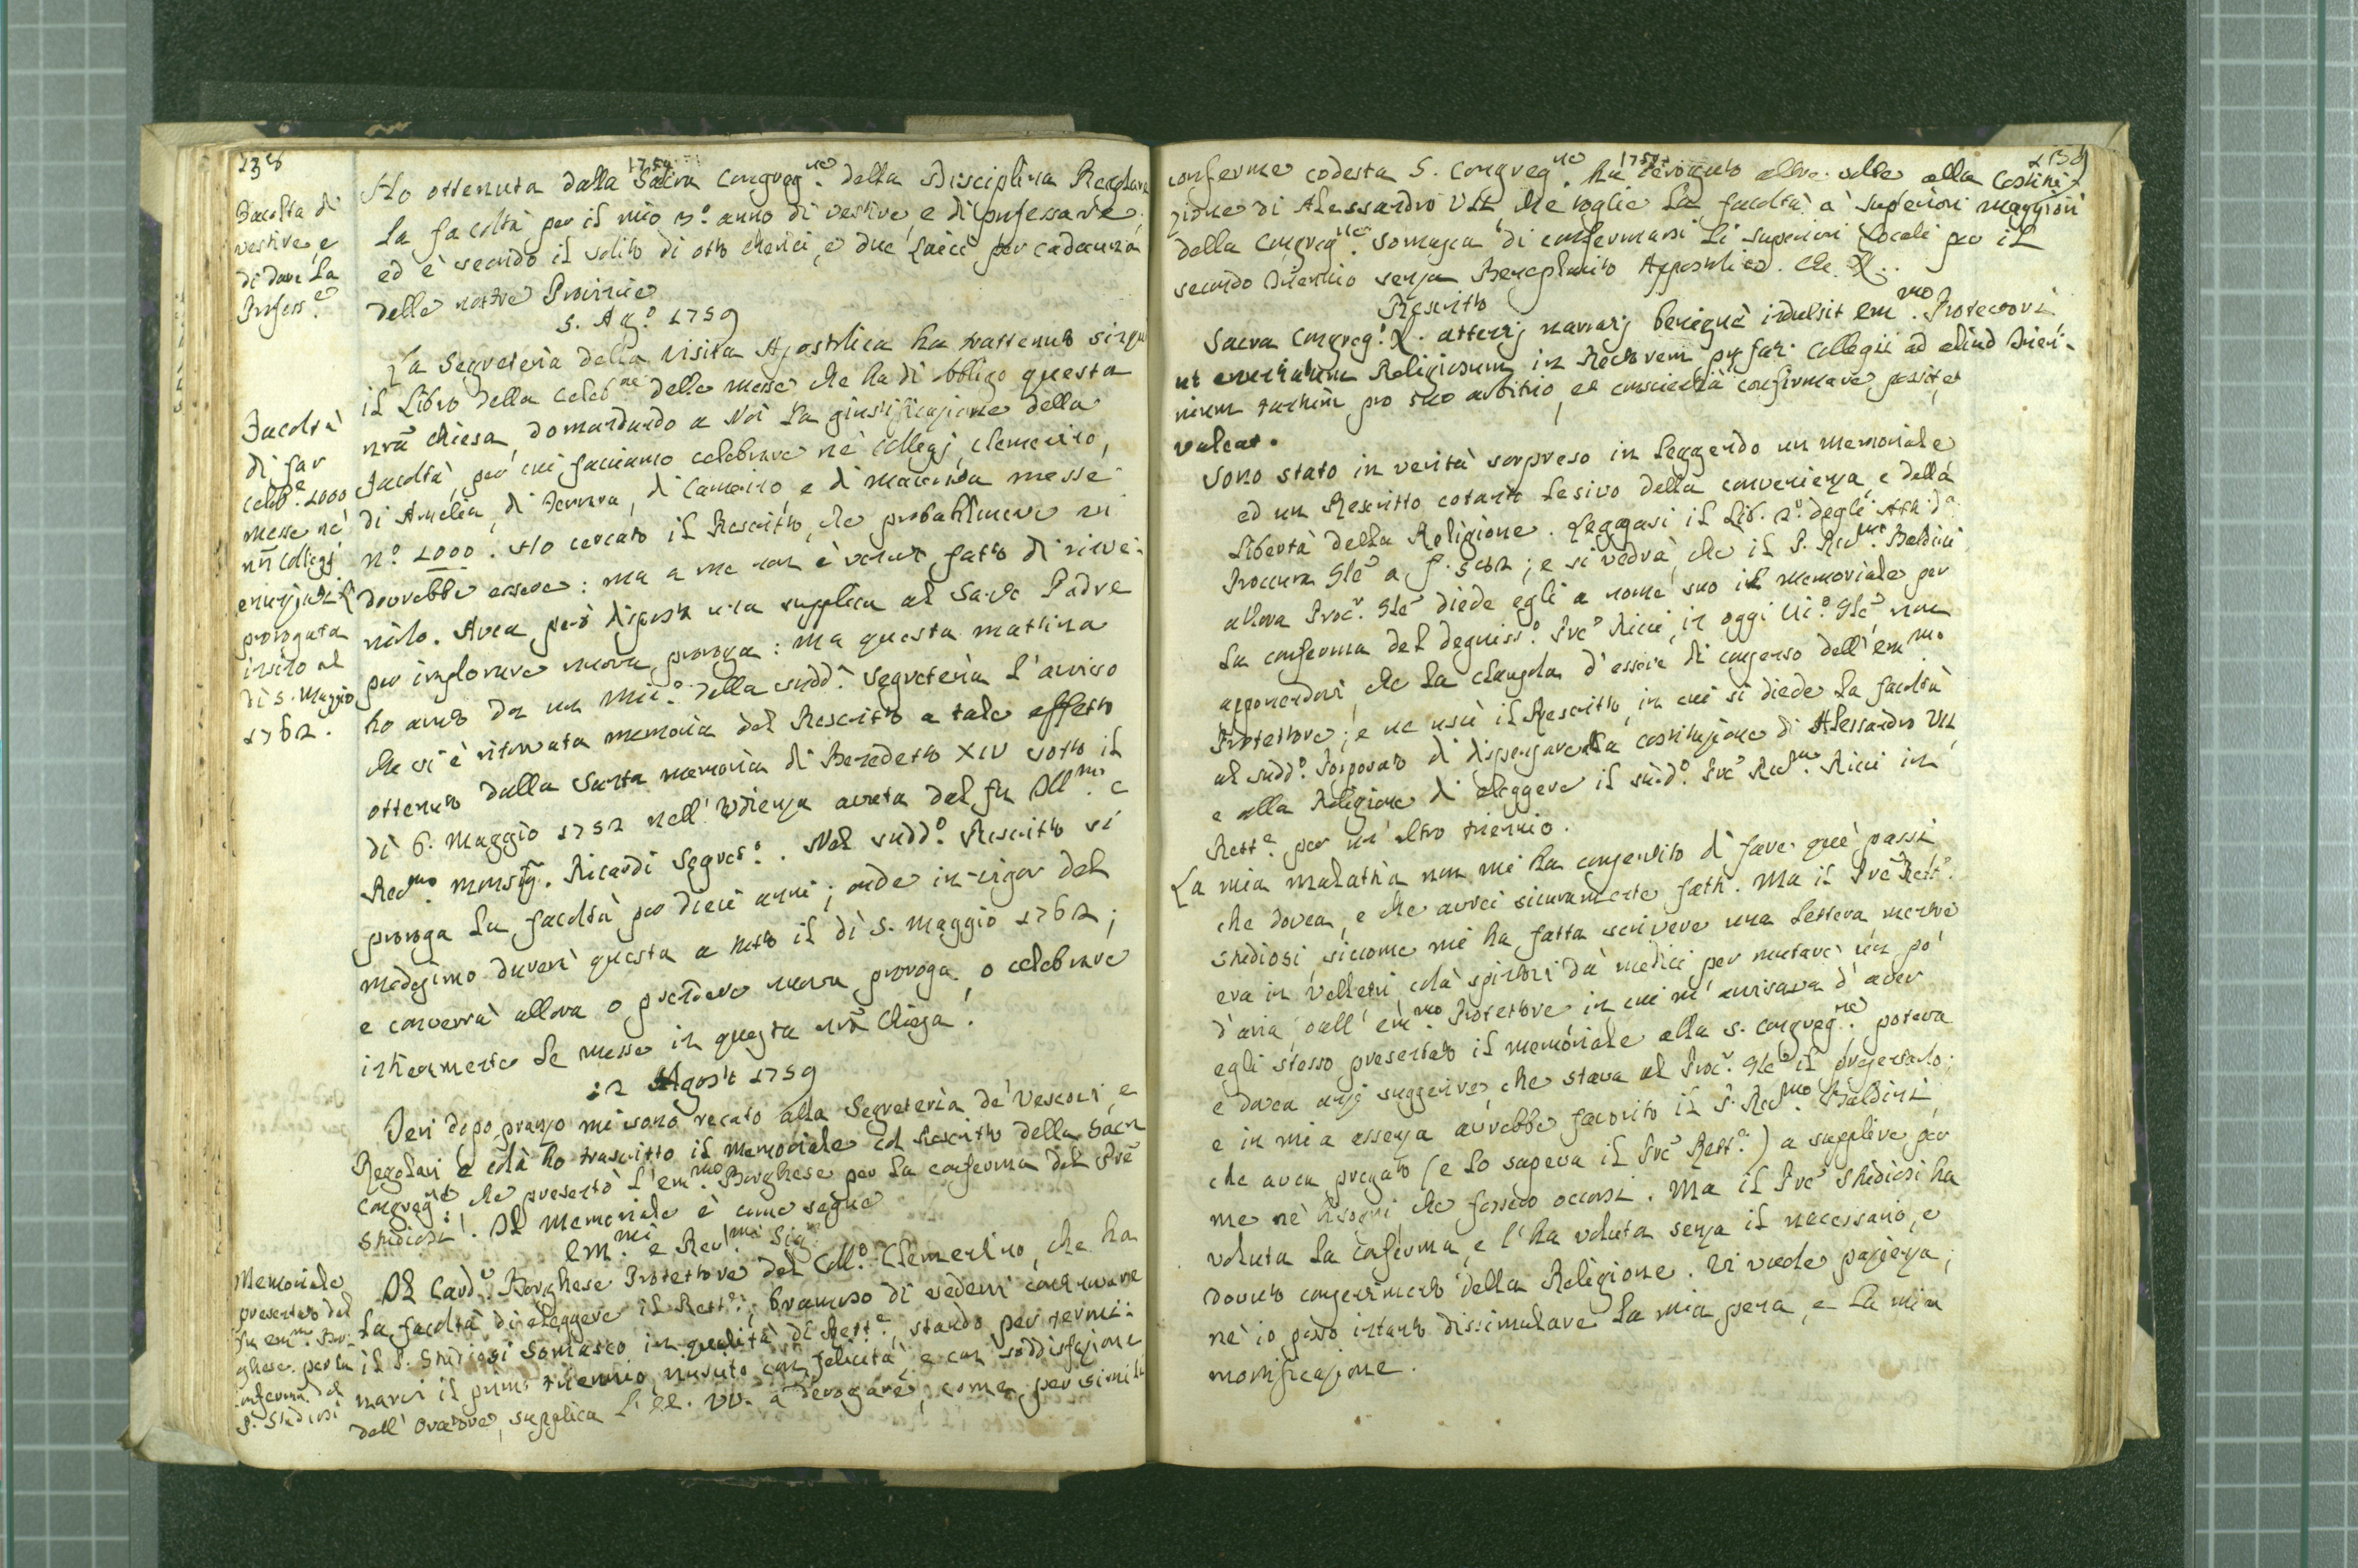 238
1759
Facoltà di
vestire, e
di dare la
Profess.e
Ho ottenuta dalla Sacra Congreg.ne della Disciplina Regolare
la facoltà per il mio 3.o anno di vestire, e di professare,
ed è secondo il solito di otto cherici, e due laici per cadauna
delle nostre Provincie
5. Ag.o 1759
La Segreteria della Visita Apostolica ha trattenuto
il Libro della Celeb.ne delle messe che ha di obbligo questa
nrã chiesa, domandando a Noi la giustificazione della
Facoltà, per cui facciamo celebrare nè Collegj, Clementino,
di Amelia, di Ferrara, di Camerino, e di Macerata messe
n.o 1000. Ho cercato il Rescritto, che probabilmente vi
dovrebbe essere: ma a me non è venuto fatto di rinve-
nirlo. Avea però disposta una supplica al Santo Padre
per implorare nuova proroga: ma questa mattina
ho avuto da un Min.o della sudd.a Segreteria l'avviso
che si è ritrovata memoria del Rescritto a tale effetto
ottenuto dalla Santa memoria di Benedetto XIV sotto il
dì 6. Maggio 1752 nell'Udienza avuta dal fu Ill.mo e
Red.mo Monsig. Ricardi Segret.o. Nel sudd.o Rescritto si
proroga la facoltà per dieci anni; onde in vigor del
medesimo durerà questa a tutto il dì 5. Maggio 1762;
e converrà allora o prendere nuova proroga, o celebrare
interamente le messe in questa nrã Chiesa.
Facoltà
di far
celeb.e 1000
messe nè
nrĩ Collegj
prorogata
insino al
dì 5. Maggio
1762.
12 Agosto 1759
Jeri dopo pranzo mi sono recato alla Segreteria de' Vescovi, e
Regolari e colà ho trascritto il memoriale ed Rescritto della Sacra
Congreg.ne che presentò l'em.mo Borghese per la conferma del Pre
Studiosi. Il Memoriale è come segue
Em.mi e Rev.mi Sig.ri
Memoriale
presentato dal
fu em.mo Bor-
ghese per la
conferma del
P. Studiosi
Il Card.l Borghese Protettore del Coll.o Clementino, che ha
la facoltà di eleggere il Rett.e, bramoso di vedervi continuare
il P. Studiosi Somasco in qualità di Rett.e, stando per termi-
narvi il primo triennio, misuto con felicità, e con soddisfazione
dell'Oratore, supplica l'EE. VV. a derogare, come per simili
1759
239
conferme codesta S. Congreg.ne ha derogato altre volte alla Costitu-
zione di Alessandro VII, che toglie la facoltà a' superiori maggiori
della Congreg.ne Somasca di confermarsi li superiori locali per il
secondo triennio senza Beneplacito Appostolico. Che &.
Rescritto
Sacra Congreg.o &. attentis narratis benignè indulsit em.mo Protectori
ut enunciatum Religiosum in Rectorem prefati Collegii ad aliud trien-
nium tantum pro suo arbitrio, et conscientia confirmare possit, et
valeat.
Sono stato in verità sorpreso in leggendo un memoriale
ed un Rescritto cotanto lesivo della convenienza, e della
libertà della Religione. Leggasi il Lib. 2.o degli Atti d.a
Proccura Gle a f. 502; e si vedrà, che il P. Red.mo Baldini
allora Proc.r Gle diede egli a nome suo il memoriale per
la conferma del degniss.o Pre Ricci, in oggi Vic.o Gle, non
apponendovi, che la clausola d'essere di consenso dell'em.mo
Protettore; e ne uscì il Rescritto, in cui si diede la facoltà
al sudd.o Porporato di dispensare alla costituzione di Alessandro VII,
e alla Religione di eleggere il sud.o Pre Red.mo Ricci in
Rett.e per un'altro triennio.
La mia malattia non mi ha consentito di fare que' passi
che dovea, e che avrei sicuramente fatti. Ma il Pre Rett.e
Studiosi, siccome mi ha fatta scrivere una lettera mentre
era in Velletri colà spintovi da' medici per mutare un pò
d'aria, dall'em.mo Protettore in cui m'avvisava d'aver
egli stesso presentato il memoriale alla S. Congreg.ne poteva
e dovea anzi suggerire, che stava al Proc.r Gle il presentarlo:
e in mia assenza avrebbe favorito il P. Red.mo Baldini,
che avea pregato (e lo sapeva il Pre Rett.e) a supplire per
me nè bisogni che fossero occorsi. Ma il Pre Studiosi ha
voluta la conferma, e l'ha voluta senza il necessario, e
dovuto consentimento della Religione. Vi vuole pazienza;
nè io posso intanto dissimulare la mia pena, e la mia
mortificazione.